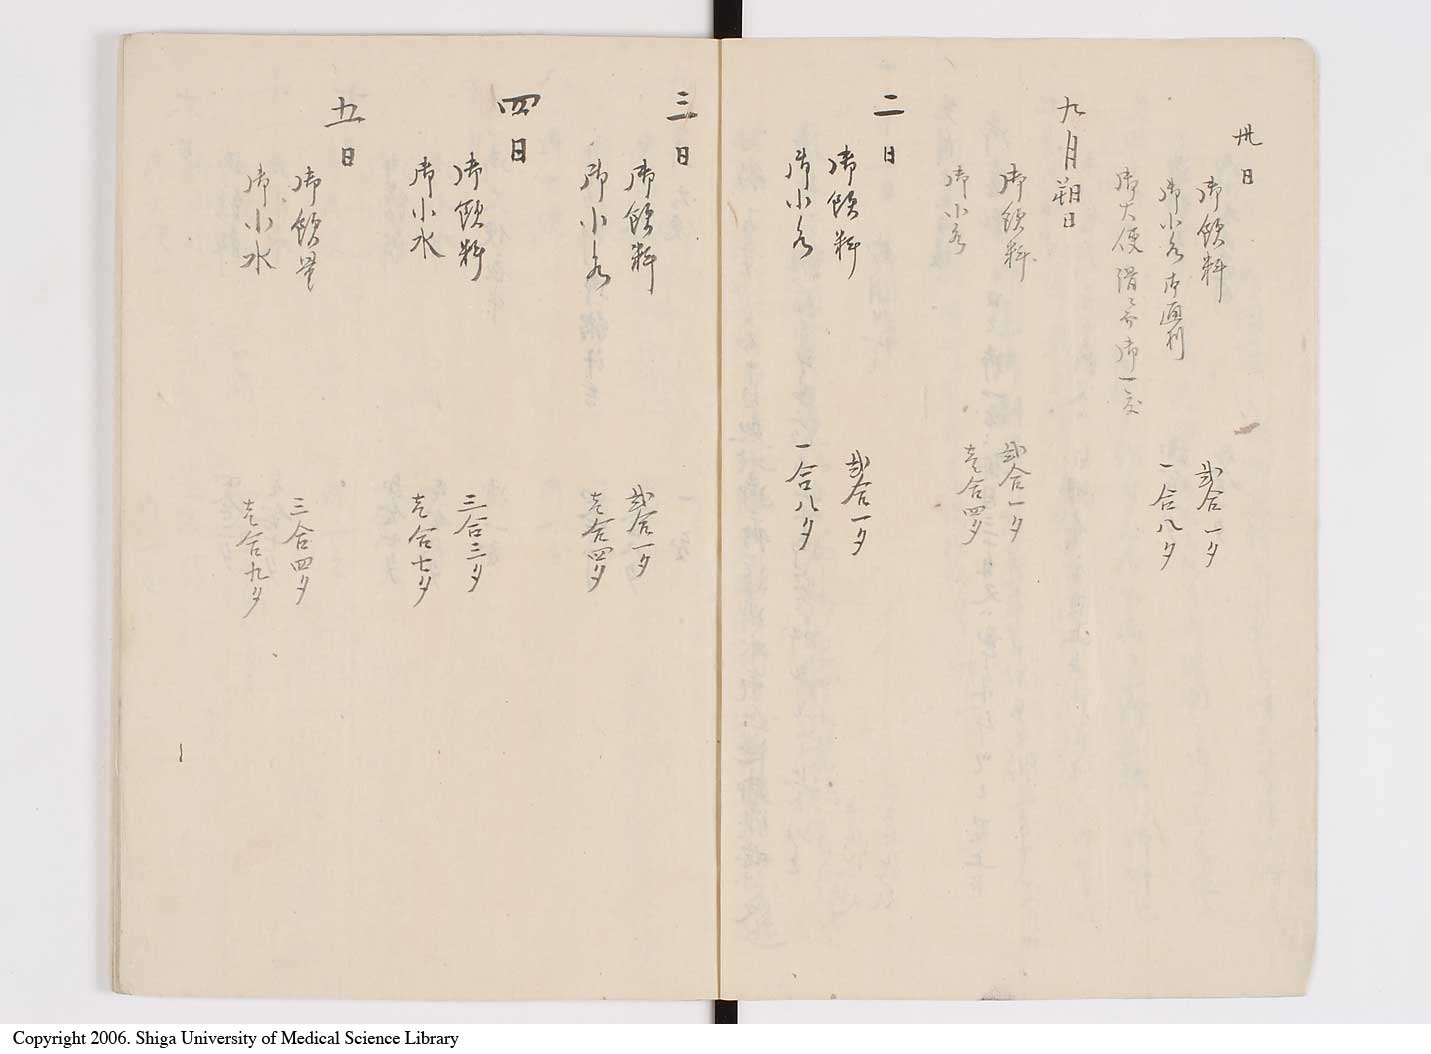 卅日
御飲料 弐合一夕
御小水御通利 一合八夕
御大便 御一度
九月朔日
御飲料 弐合一夕
御小水 壱合四夕
二日
御飲料 弐合一夕
御小水 一合八夕
三日
御飲料 弐合一夕
御小水 壱合四夕
四日
御飲料 三合三夕
御小水 壱合七夕
五日
御飲量 三合四夕
御小水 壱合九夕
Copyright 2006. Shiga University of Medical Science Library